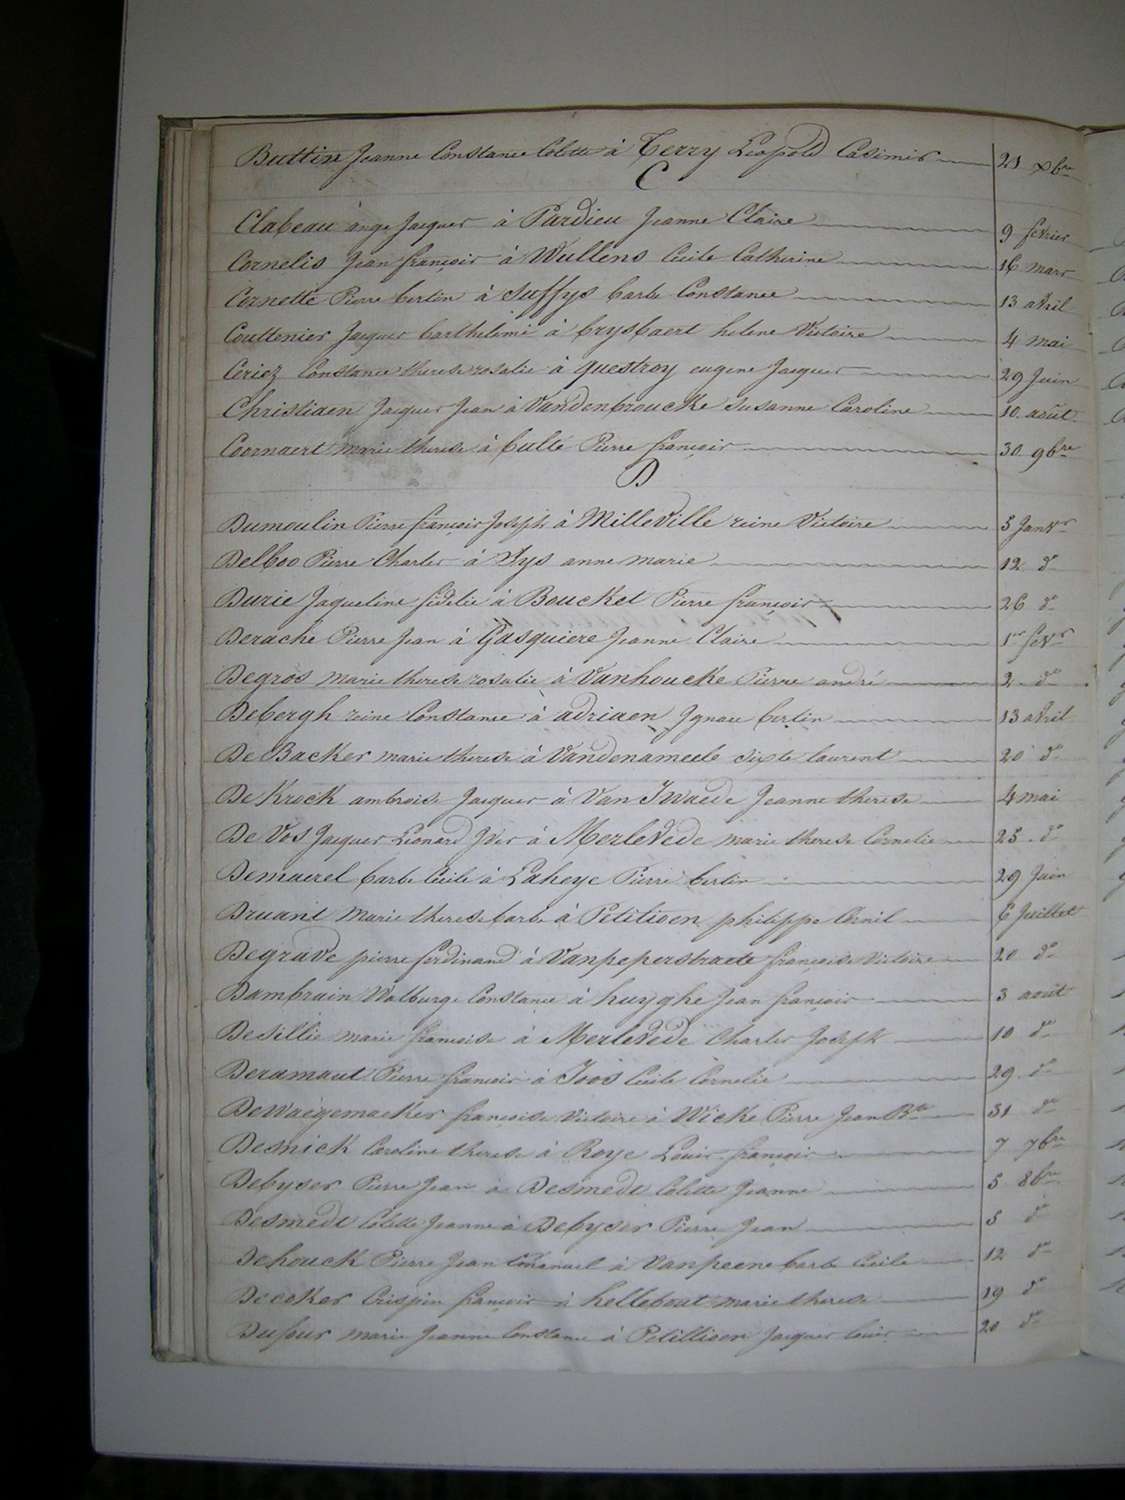 Buttin Jeanne Constance Colette à Terry Léopold Casimir 21 Xbre
C
Clabeau ange Jacques à Pardieu Jeanne Claire 9 fevrier
Cornelis Jean françois à Wullens Cécile Catherine 16 mars
Cornette Pierre bertin à Suffys barbe Constance 13 avril
Couttenier Jacques barthelémi à Cryspaert helene Victoire 4 mai
Coriez Constance therese rosalie à questroy eugene Jacques 29 Juin
Christiaen Jacques Jean à Vandenbroucke Susanne Caroline 10 août
Coornaert marie therese à bulté Pierre françois 30 9bre
D
Dumoulin Pierre françois Joseph à Milleville reine Victoire 5 Janvr
Delboo Pierre Charles à Sys anne marie 12 do
Durie Jaqueline fidelie à Bouckel Pierre françois 26 do
Derache Pierre Jean à Gasquiere Jeanne Claire 1er fevr
Degros marie therese rosalie à Vanhoucke Pierre andré 2 do
Debergh reine Constance à adriaen Ignace bertin 13 avril
De Backer marie therese à Vandenameele sixte laurent 20 do
De Krock ambroise Jacques à Van Iwaede Jeanne therese 4 mai
De Vos Jacques Léonard à Merlevede marie therese Cornelie 25 do
Demaerel barbe Cécile à Laheye Pierre bertin 29 Juin
Druant Marie therese barbe à Petitioen philippe 6 Juillet
Degrave pierre ferdinand à Vanpeperstraete françoise Victoire 20 do
Dambrain Walburge Constance à huyghe Jean françois 3 août
Desillie marie françoise à Merlevede Charles Joseph 10 do
Deramaut Pierre françois à Joos Cécile Cornelie 29 do
Dewaegemacker françoise Victoire à Wicke Pierre Jean Bte 31 do
Desnick Caroline therese à Roye Louis françois 7 7bre
Debyser Pierre Jean à Desmedt Colette Jeanne 5 8bre
Desmedt Colette Jeanne à Debyser Pierre Jean 5 do
Dehouck Pierre Jean Emanuel à Vanpeene barbe Cécile 12 do
Decoker Crispin françois à hellebout marie therese 19 do
Dufour marie Jeanne Constance à Petillioen Jacques Louis 20 do